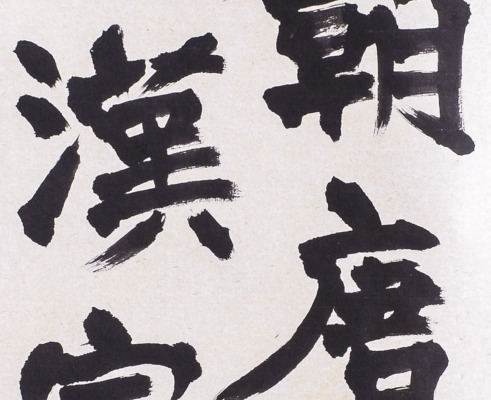 朝唐
漢